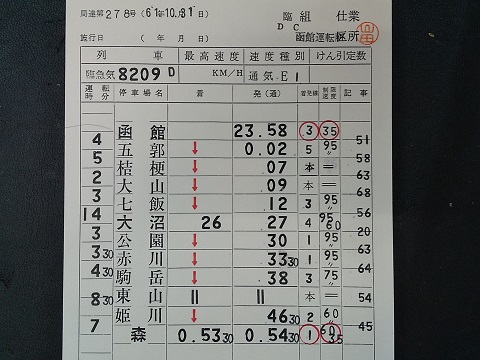 周達第278号(61年10月31日) 臨 組 仕業
施行日 ( 年 月 日) DC 函館運転区所
列車 最高速度 速度種別 けん引定数
臨急気8209D KM/H 通気-E1
運転時分 停車場名 着 発(通) 着発線 制限速度 記事
函館 23.58 3 35
4 51
五郭 ↓ 0.02 5 95
5 58
桔梗 ↓ 07 本 =
2 63
大山 ↓ 09 本 =
3 68
七飯 ↓ 12 3 95〃
14 56
大沼 26 27 4 95 60
3 20
公園 ↓ 30 1 95〃
3 30 63
赤川 ↓ 33 30 1 95〃
4 30 64
駒岳 ↓ 38 3 75
東山 || || 本 =
8 30 54
姫川 ↓ 46 30 2 60〃
7 45
森 0.53 30 0.54 30 1 60 35